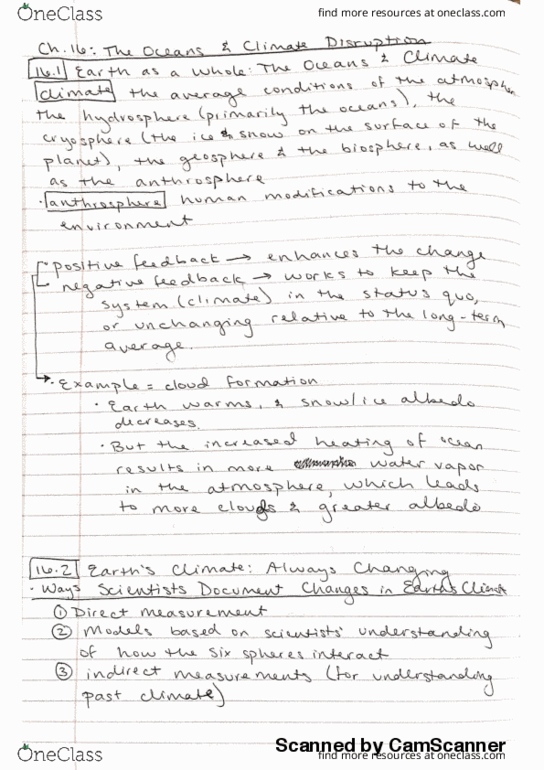 OneClass
find more resources at oneclass.com
Ch.16: The Oceans & Climate Disruption
16.1 Earth as a Whole: The Oceans & Climate
climate the average conditions of the atmosphere
the hydrosphere (primarily the oceans), the
cryosphere (the ice & snow on the surface of the
planet), the geosphere & the biosphere, as well
as the anthrosphere
· anthrosphere human modifications to the
environment
· positive feedback → enhances the change
· negative feedback → works to keep the
system (climate) in the status quo,
or unchanging relative to the long-term
average.
· Example = cloud formation
· Earth warms, & snow/ice albedo
decreases.
· But the increased heating of ocean
results in more water vapor
in the atmosphere, which leads
to more clouds & greater albedo
16.2 Earth's Climate: Always Changing
· Ways Scientists Document Changes in Earth's Climate
① Direct measurement
② Models based on scientists' understanding
of how the six spheres interact
③ indirect measurements (for understanding
past climate)
Scanned by CamScanner
OneClass
find more resources at oneclass.com